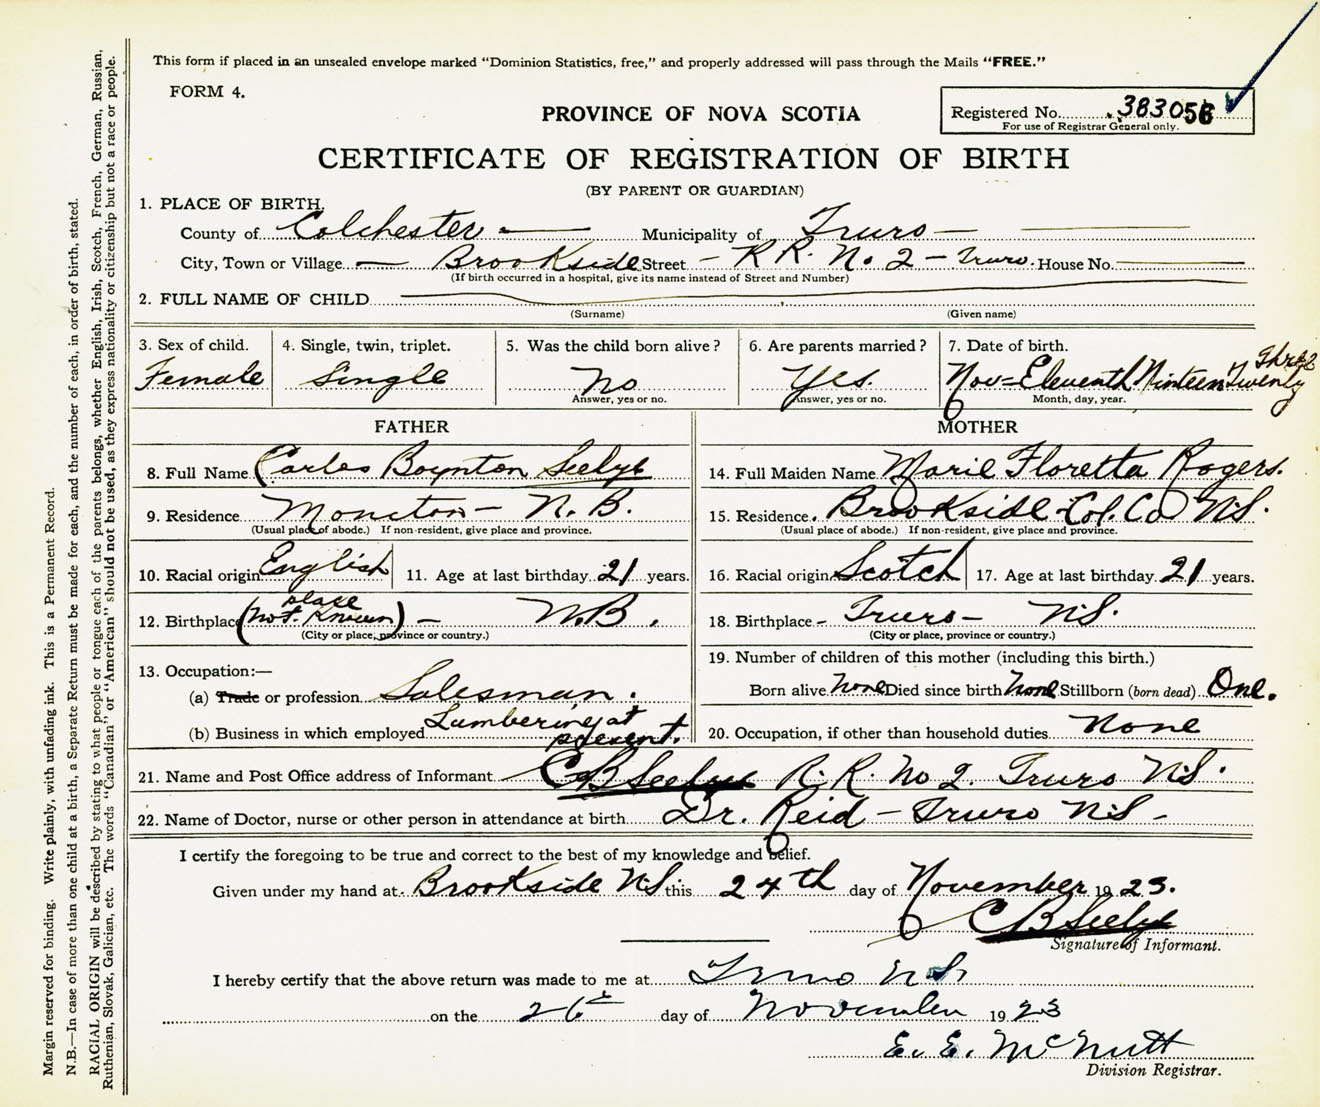 This form if placed in an unsealed envelope marked "Dominion Statistics, free," and properly addressed will pass through the Mails "FREE."
FORM 4.
PROVINCE OF NOVA SCOTIA
Registered No. 383056
For use of Registrar General only.
CERTIFICATE OF REGISTRATION OF BIRTH
(BY PARENT OR GUARDIAN)
1. PLACE OF BIRTH,
County of Colchester — Municipality of Truro —
City, Town or Village — Brookside Street - R.R. No 2 - Truro. House No.
(If birth occurred in a hospital, give its name instead of Street and Number)
2. FULL NAME OF CHILD
(Surname) (Given name)
3. Sex of child. 4. Single, twin, triplet. 5. Was the child born alive? 6. Are parents married? 7. Date of birth.
Female Single No Yes. Nov = Eleventh Nineteen Twenty Three
Answer, yes or no. Answer, yes or no. Month, day, year.
FATHER MOTHER
8. Full Name Carles Boynton Seelye 14. Full Maiden Name Marie Floretta Rogers.
9. Residence Moncton - N.B. 15. Residence. Brookside - Col. Co N.S.
(Usual place of abode.) If non-resident, give place and province. (Usual place of abode.) If non-resident, give place and province.
10. Racial origin English 11. Age at last birthday 21 years. 16. Racial origin Scotch 17. Age at last birthday 21 years.
12. Birthplace (place not known) - N.B. 18. Birthplace - Truro - N.S.
(City or place, province or country.) (City or place, province or country.)
13. Occupation:— 19. Number of children of this mother (including this birth.)
(a) Trade or profession Salesman. Born alive none Died since birth none Stillborn (born dead) One.
(b) Business in which employed Lumbering at present. 20. Occupation, if other than household duties None
21. Name and Post Office address of Informant C B Seelye R.R. No 2. Truro N.S.
22. Name of Doctor, nurse or other person in attendance at birth Dr. Reid - Truro N.S -
I certify the foregoing to be true and correct to the best of my knowledge and belief.
Given under my hand at Brookside N.S this 24th day of November 1923.
C B Seelye
Signature of Informant.
I hereby certify that the above return was made to me at Truro N.S.
on the 26th day of November 1923
E. E. McNutt
Division Registrar.
Margin reserved for binding. Write plainly, with unfading ink. This is a Permanent Record.
N.B.—In case of more than one child at a birth, a Separate Return must be made for each, and the number of each, in order of birth, stated.
RACIAL ORIGIN will be described by stating to what people or tongue each of the parents belongs, whether English, Irish, Scotch, French, German, Russian,
Ruthenian, Slovak, Galician, etc. The words "Canadian" or "American" should not be used, as they express nationality or citizenship but not a race or people.